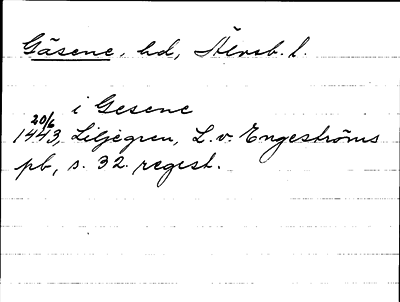 Gäsene, hd, Älvsb. l.
i Gesene
20/6
1443, Liljegren, L. v. Engeströms
pb, s. 32. regist.